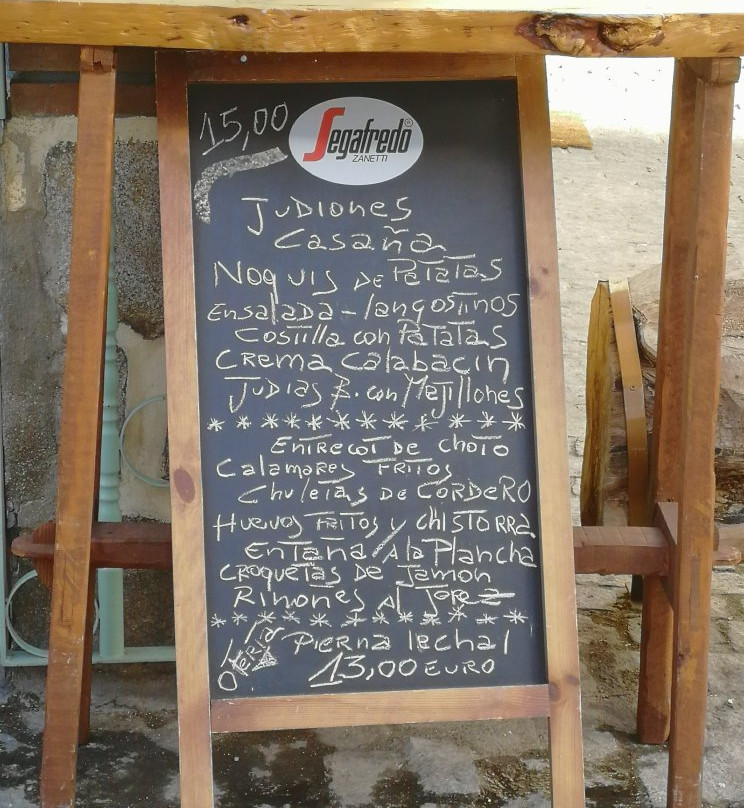 15,00
Segafredo®
ZANETTI
JUDIONES
Casaña
NoQUIS DE PaTaTaS
Ensalada - langostinos
Costilla con PaTaTaS
CREMA Calabacin
JUDIAS B. con Mejillones
* * * * * * * * * * *
ENTRECOT DE CHOTO
Calamares FRITOS
Chuletas DE CORDeRO
Huevos FRITOS y ChISTORRA
EnTana/A la Plancha
CROQUETAS DE Jamon
RIÑONES Al Jerez
* * * * * * * * * * *
OFERTA Pierna lechal
13,00 EURO